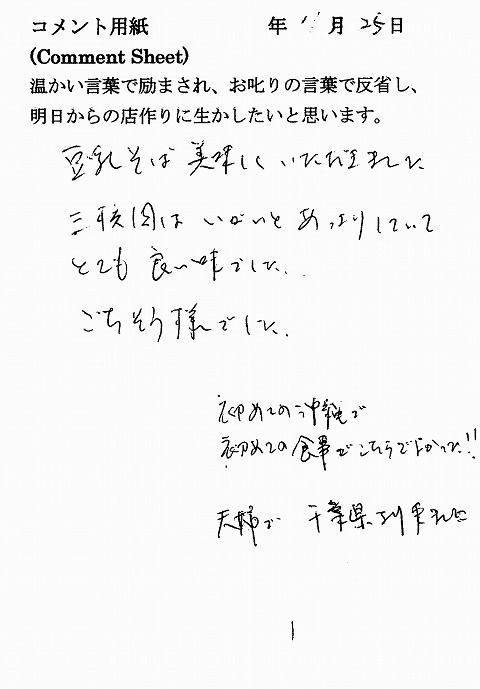 コメント用紙　年 11 月 25 日
(Comment Sheet)
温かい言葉で励まされ、お叱りの言葉で反省し、
明日からの店作りに生かしたいと思います。
豆乳そば 美味しくいただきました
三枚肉は いがいと あっさりしていて
とても 良い味でした。
ごちそう様でした。
初めての沖縄で
初めての食事がこちらでよかった!!
夫婦で 千葉県より来ました